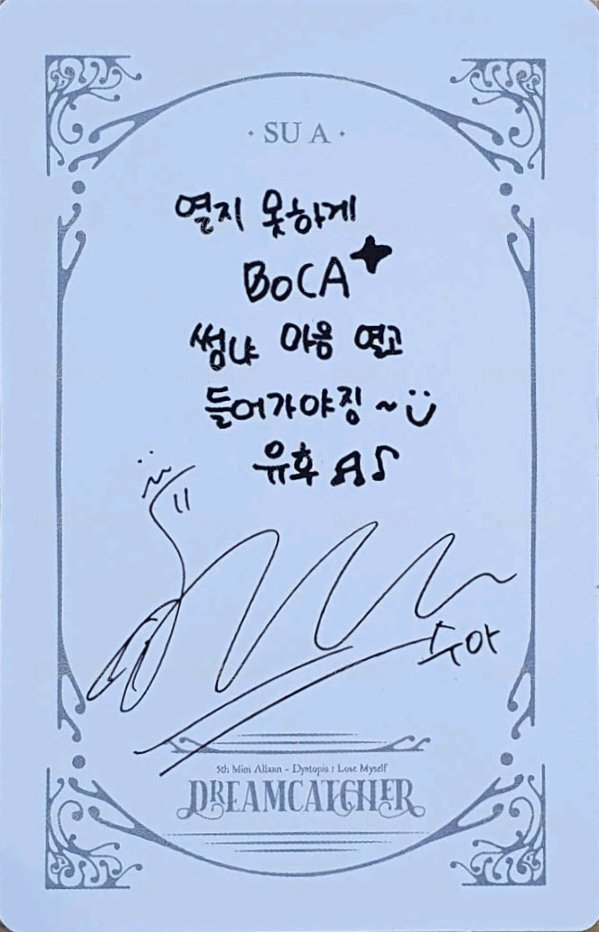 · SU A ·
열지 못하게
BOCA
썽냐 마음 열고
들어가야징~
유후
수아
5th Mini Album - Dystopia : Lose Myself
DREAMCATCHER